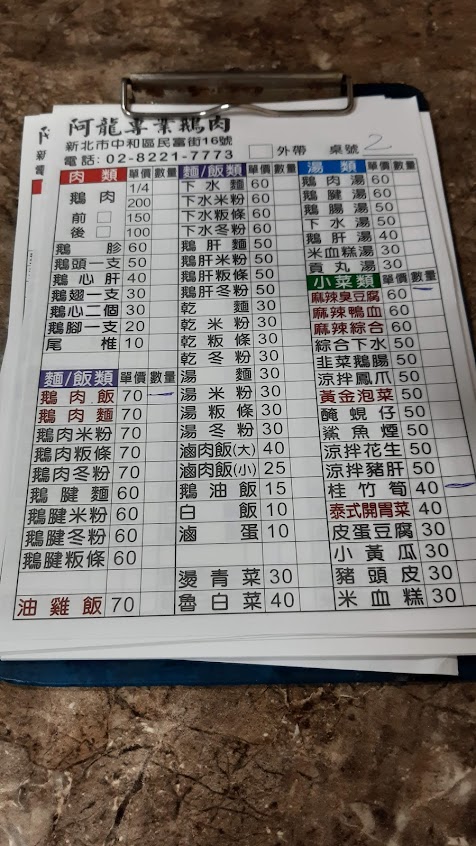 阿龍專業鵝肉
新北市中和區民富街16號
電話：02-8221-7773
□外帶 桌號 2
肉類 單價 數量
鵝肉 1/4 200
前□ 150
後□ 100
鵝胗 60
鵝頭一支 50
鵝心肝 40
鵝翅一支 30
鵝心二個 30
鵝腳一支 20
尾椎 10
麵/飯類 單價 數量
鵝肉飯 70
鵝肉麵 70
鵝肉米粉 70
鵝肉粄條 70
鵝肉冬粉 70
鵝腱麵 60
鵝腱米粉 60
鵝腱冬粉 60
鵝腱粄條 60
油雞飯 70
麵/飯類 單價 數量
下水麵 60
下水米粉 60
下水粄條 60
下水冬粉 60
鵝肝麵 50
鵝肝米粉 50
鵝肝粄條 50
鵝肝冬粉 50
乾麵 30
乾米粉 30
乾粄條 30
乾冬粉 30
湯麵 30
湯米粉 30
湯粄條 30
湯冬粉 30
滷肉飯(大) 40
滷肉飯(小) 25
鵝油飯 15
白飯 10
滷蛋 10
燙青菜 30
魯白菜 40
湯類 單價 數量
鵝肉湯 60
鵝腱湯 60
鵝腸湯 50
下水湯 50
鵝肝湯 40
米血糕湯 30
貢丸湯 30
小菜類 單價 數量
麻辣臭豆腐 60
麻辣鴨血 60
麻辣綜合 60
綜合下水 50
韭菜鵝腸 50
涼拌鳳爪 50
黃金泡菜 50
醃蜆仔 50
鯊魚煙 50
涼拌花生 50
涼拌豬肝 50
桂竹筍 40
泰式開胃菜 40
皮蛋豆腐 30
小黃瓜 30
豬頭皮 30
米血糕 30